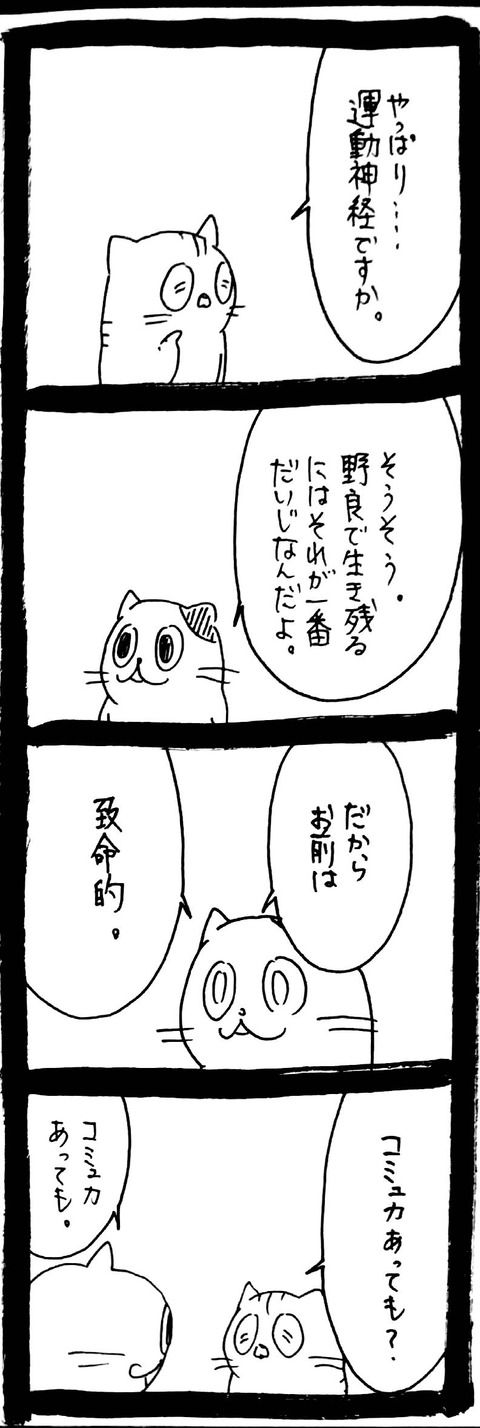 やっぱり‥‥
運動神経ですか。
そうそう。
野良で生き残る
にはそれが一番
だいじなんだよ。
だから
お前は
致命的。
コミュ力あっても？
コミュ力
あっても。